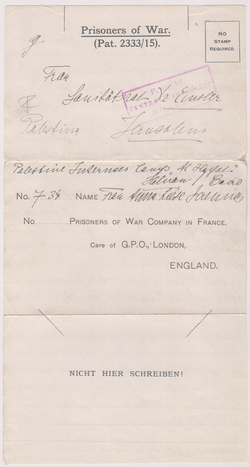 Prisoners of War.
(Pat. 2333/15).
NO
STAMP
REQUIRED
Frau
Sanitätsrat Dr Einsler
Palestine
Jerusalem
Palestine Internees Camp, Al Hayat
Helouan / Cairo
No. 734 NAME Frau
No PRISONERS OF WAR COMPANY IN FRANCE,
CARE OF G.P.O., LONDON,
ENGLAND.
NICHT HIER SCHREIBEN!